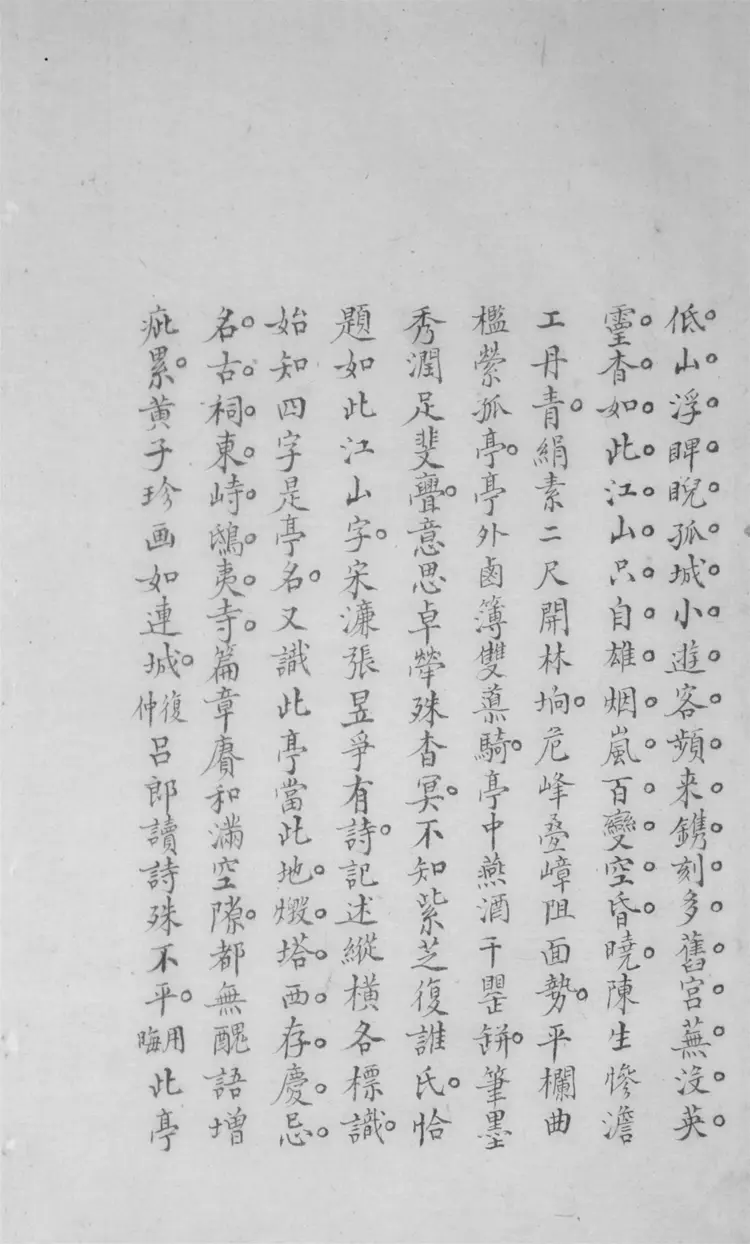 低山浮睥睨孤城小遊客頻来鐫刻多舊宫蕪没英
靈杳如此江山只自雄烟嵐百變空昏曉陳生慘澹
工丹青絹素二尺開林坰危峰叠嶂阻面勢平欄曲
檻縈孤亭亭外鹵簿雙蒸騎亭中燕酒千罌缾筆墨
秀潤足斐亹意思卓犖殊杳冥不知紫芝復誰氏恰
題如此江山字宋濂張昱爭有詩記述縱横各標識
始知四字是亭名又識此亭當此地燬塔西存慶忌
名古祠東峙鴟夷寺篇章賡和滿空隙都無醜語增
疵累黄子珍画如連城仲復吕郎讀詩殊不平用晦此亭